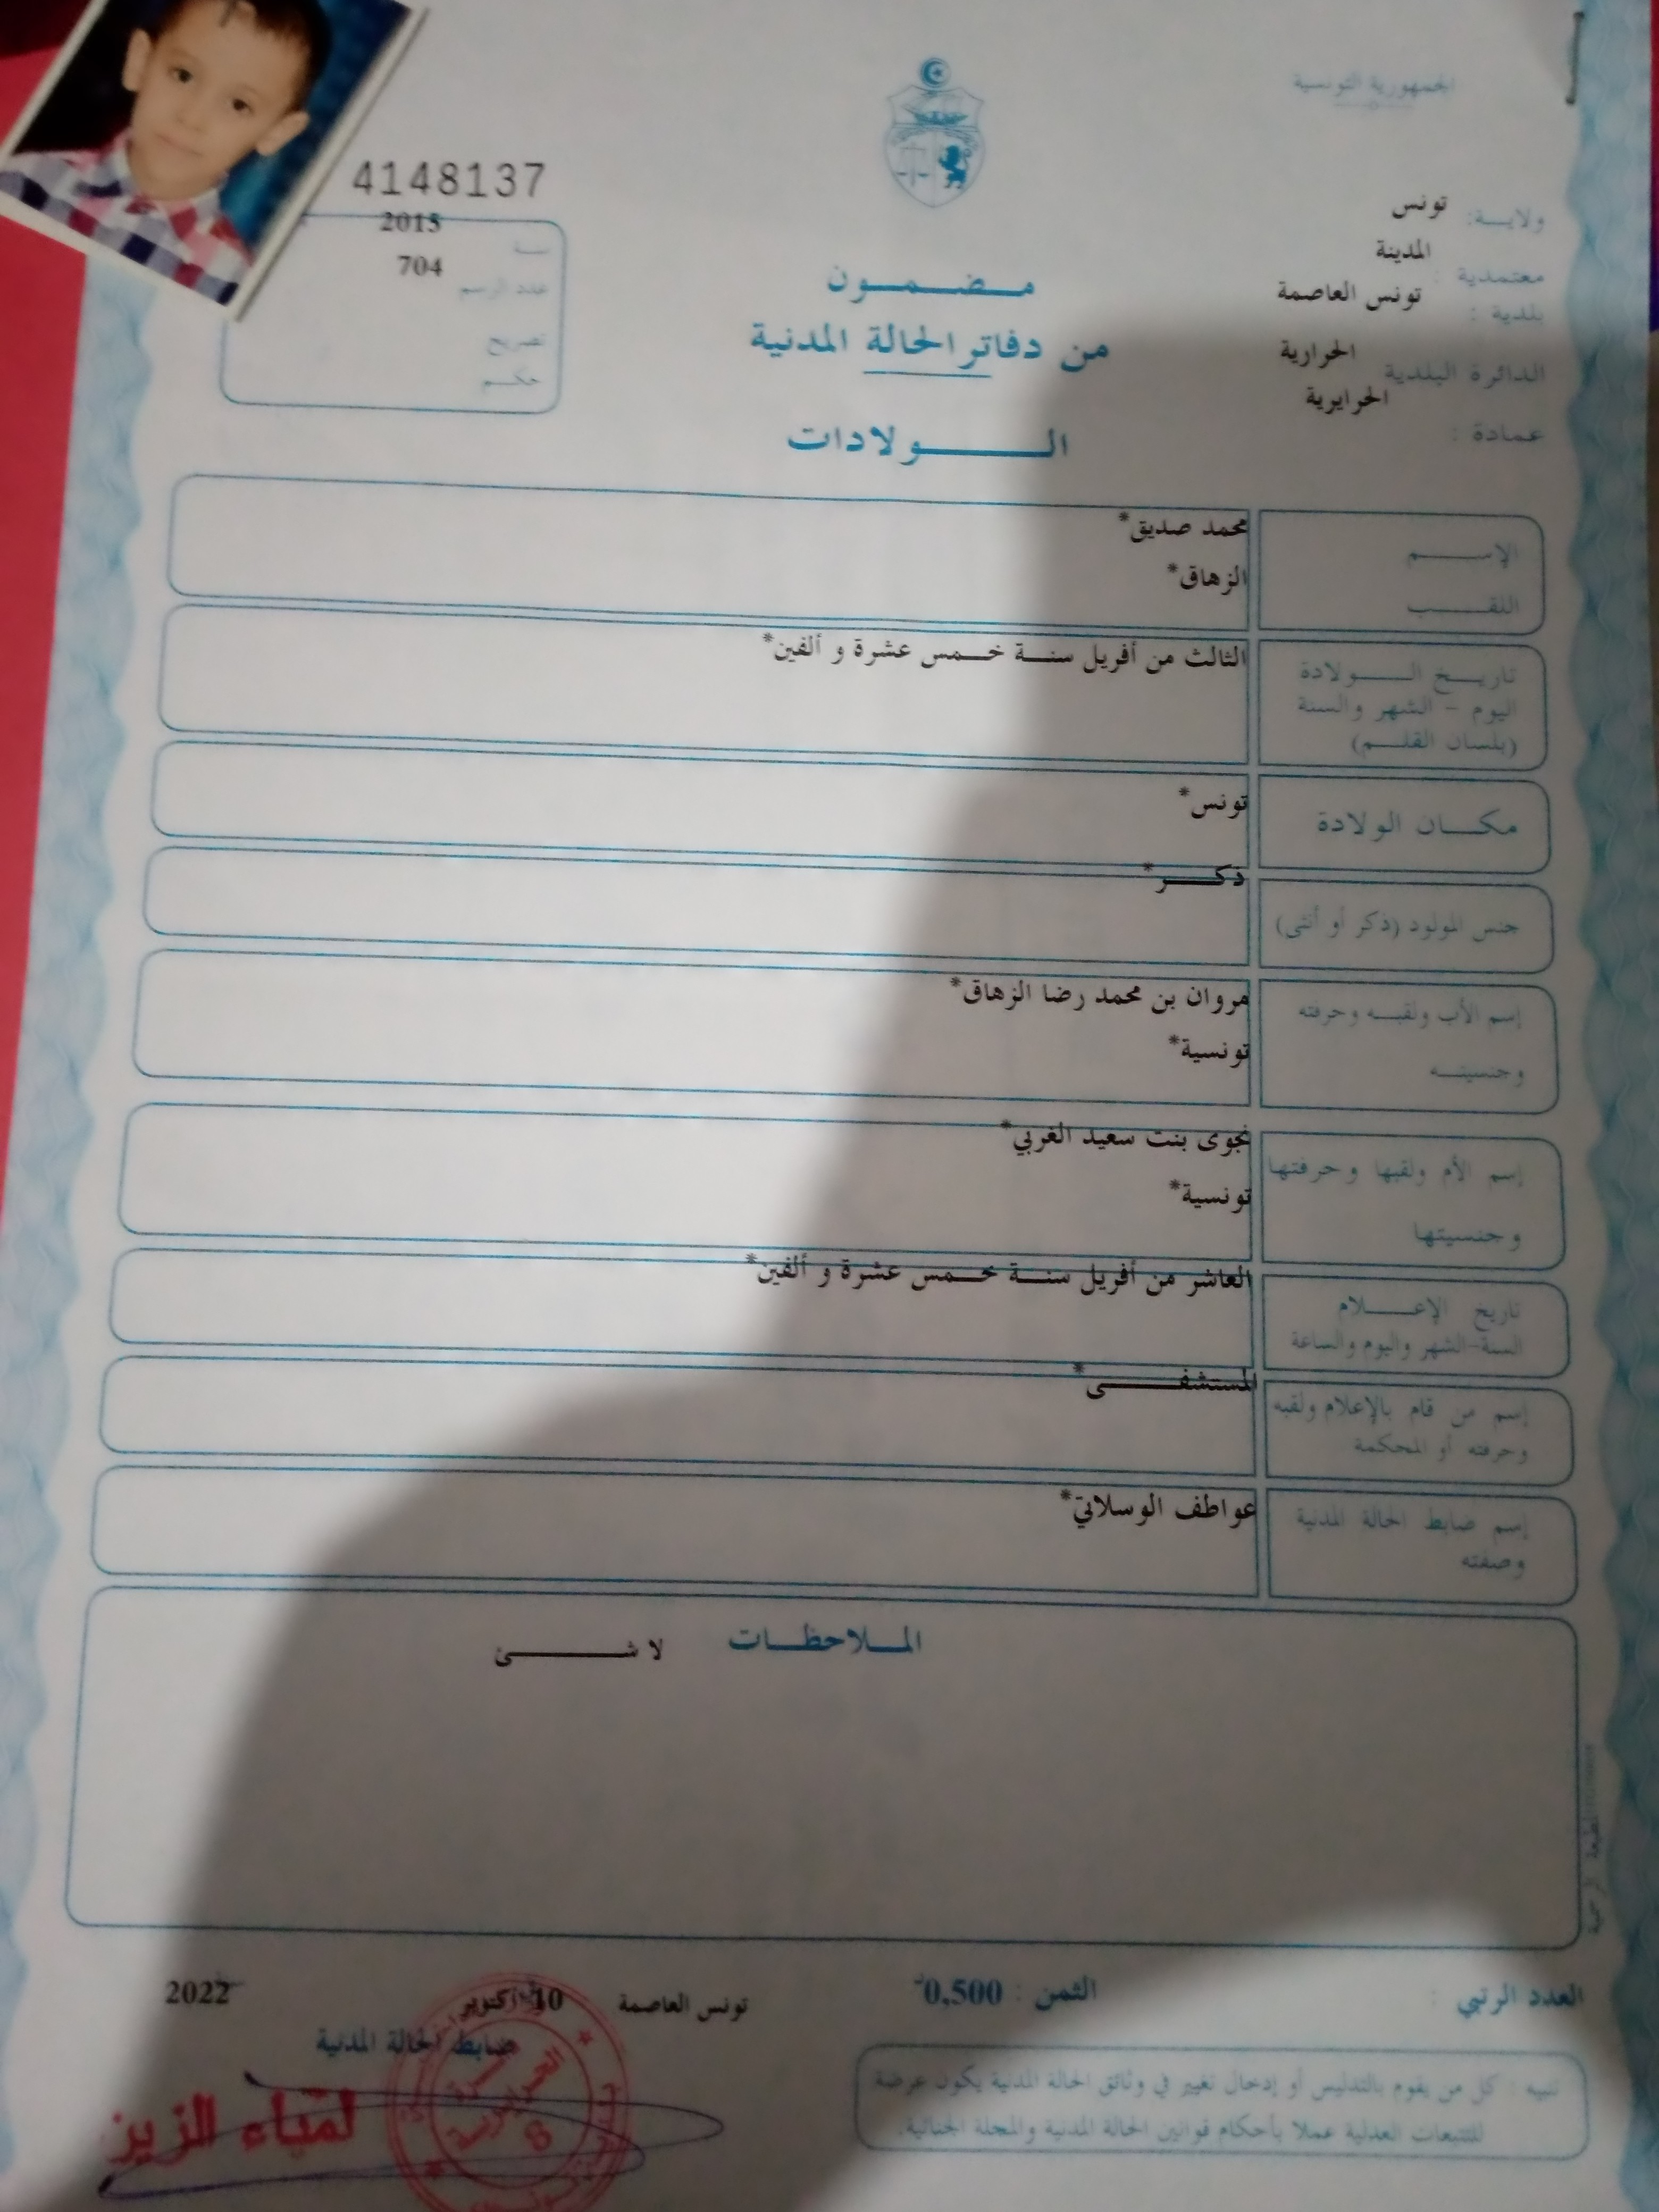 الجمهورية التونسية
ولايــة: تونس
معتمدية : المدينة
بلدية : تونس العاصمة
الدائرة البلدية الحرارية
عمادة : الحرايرية
4148137
سنـة 2015
عدد الرسم 704
تصريح
حكـم
مـضـمـون
من دفاتر الحالة المدنية
الـولادات
الإسـم محمد صديق*
اللقـب الزهاق*
تاريـخ الـولادة الثالث من أفريل سنـة خـمس عشرة و ألفين*
اليوم - الشهر والسنة
(بلسان القلـم)
مكـان الولادة تونس*
جنس المولود (ذكر أو أنثى) ذكـر*
إسم الأب ولقبـه وحرفته مروان بن محمد رضا الزهاق*
وجنسيتـه تونسية*
إسم الأم ولقبها وحرفتها نجوى بنت سعيد الغربي*
وجنسيتها تونسية*
تاريخ الإعـلام العاشر من أفريل سنـة خـمس عشرة و ألفين*
السنة-الشهر واليوم والساعة
إسم من قام بالإعلام ولقبه المستشفـى*
وحرفته أو المحكمة
إسم ضابط الحالة المدنية عواطف الوسلاتي*
وصفته
الملاحظـات لا شـئ
العدد الرتبي :
الثمن : 0,500د
تونس العاصمة 10 أكتوبر 2022
ضابط الحالة المدنية
لمياء الزين
تنبيه : كل من يقوم بالتدليس أو إدخال تغيير في وثائق الحالة المدنية يكون عرضة
للتتبعات العدلية عملا بأحكام قوانين الحالة المدنية والمجلة الجنائية.